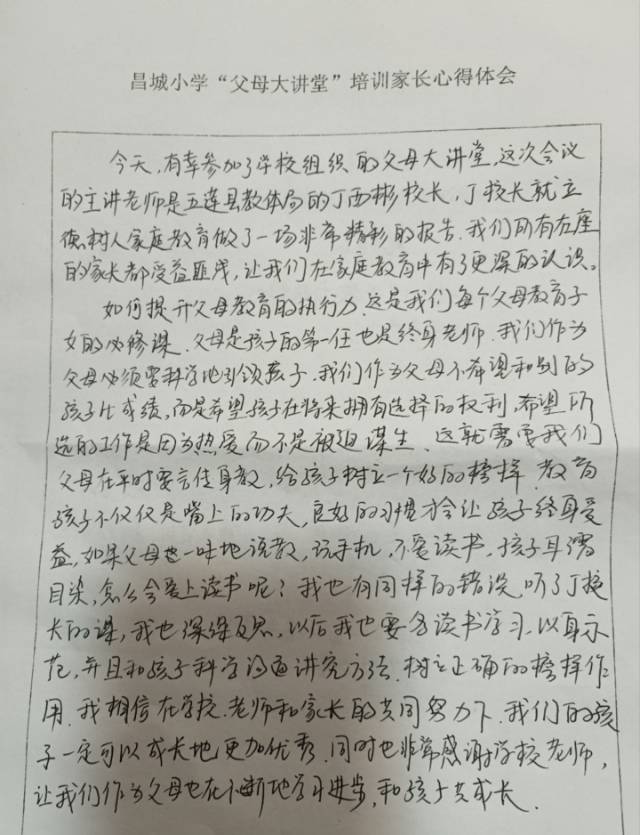 昌城小学“父母大讲堂”培训家长心得体会
今天,有幸参加了学校组织的父母大讲堂,这次会议
的主讲老师是五莲县教体局的丁西彬校长,丁校长就立
德树人家庭教育做了一场非常精彩的报告.我们所有在座
的家长都受益匪浅,让我们在家庭教育中有了更深的认识。
如何提升父母教育的执行力.这是我们每个父母教育子
女的必修课.父母是孩子的第一任也是终身老师.我们作为
父母必须要科学地引领孩子.我们作为父母不希望和别的
孩子比成绩,而是希望孩子在将来拥有选择的权利,希望所
选的工作是因为热爱而不是被迫谋生、这就需要我们
父母在平时要言传身教,给孩子树立一个好的榜样 教育
孩子不仅仅是嘴上的功夫,良好的习惯才会让孩子终身受
益,如果父母也一味地说教,玩手机,不爱读书,孩子耳濡
目染,怎么会爱上读书呢?我也有同样的错误,听了丁校
长的课,我也深深反思,以后我也要多读书学习.以身示
范,并且和孩子科学沟通讲究方法.树立正确的榜样作
用.我相信在学校.老师和家长的共同努力下.我们的孩
子一定可以成长地更加优秀.同时也非常感谢学校老师,
让我们作为父母也在不断地学习进步,和孩子共成长.